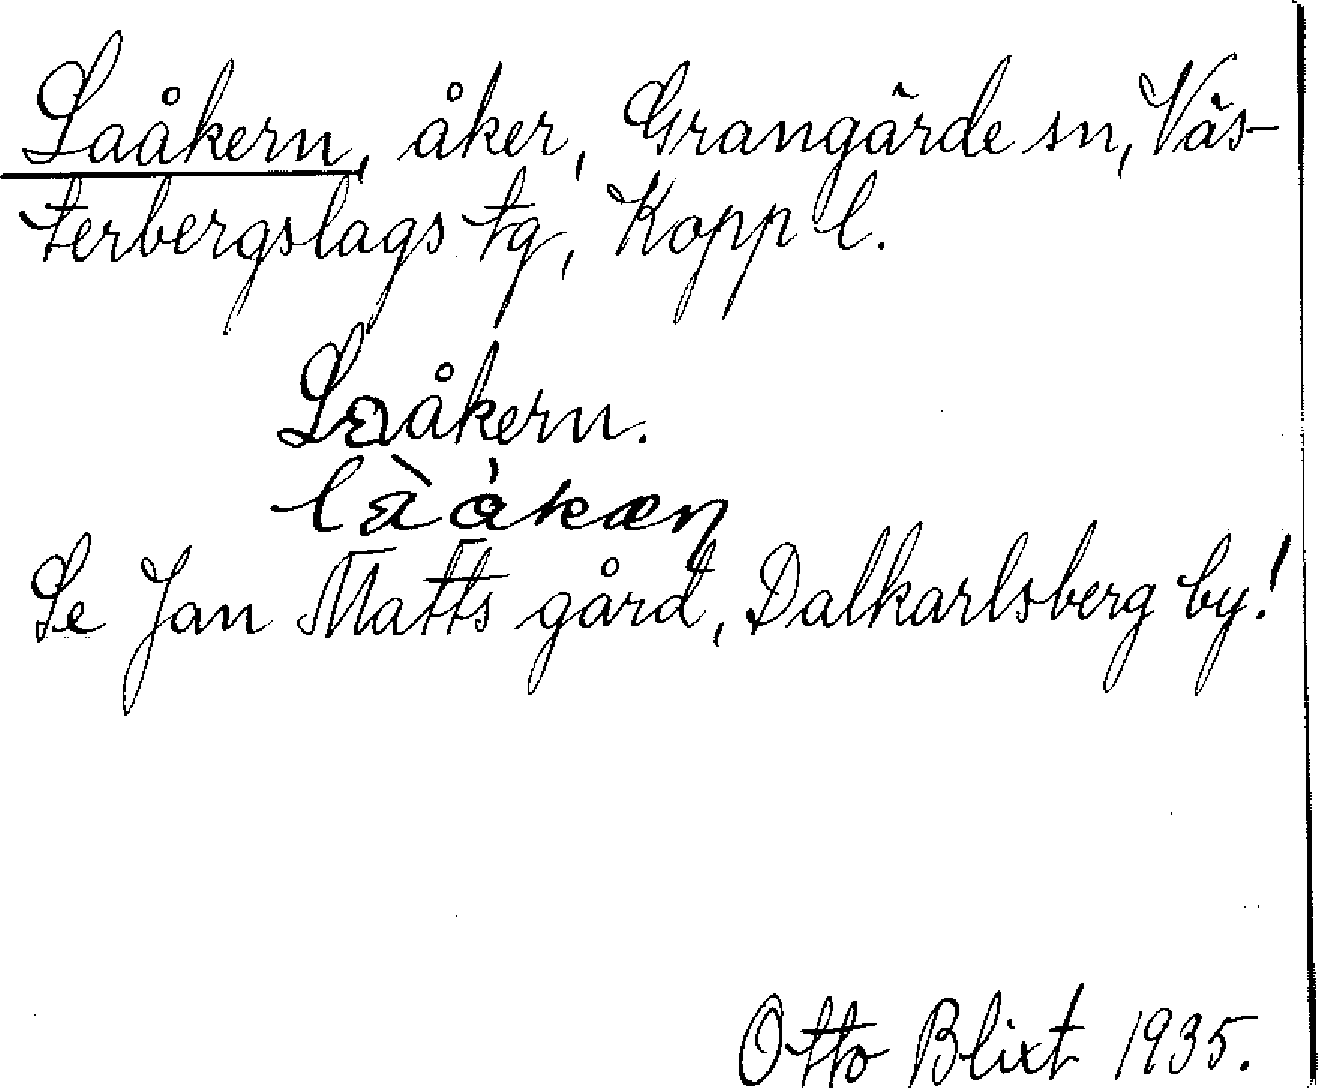 Laåkern, åker, Grangärde sn, Väs-
terbergslags tg, Kopp l.
Laåkern.
Se Jan Matts gård, Dalkarlsberg by!
Otto Blixt 1935.